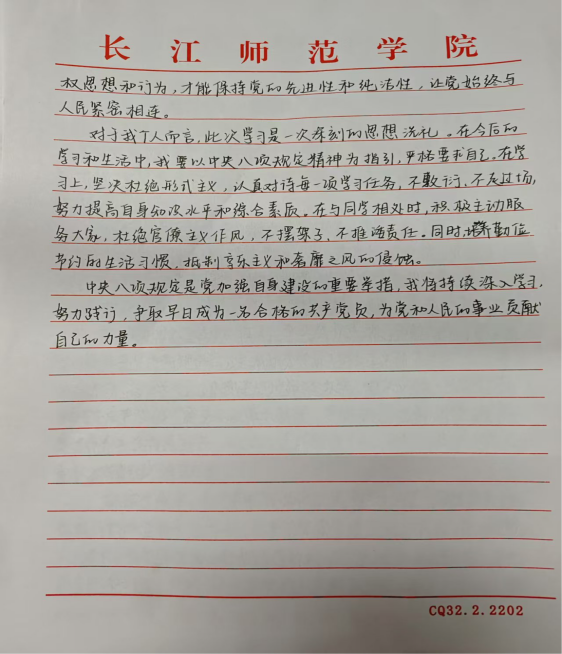 长江师范学院
权思想和行为,才能保持党的先进性和纯洁性,让党始终与
人民紧密相连。
对于我个人而言,此次学习是一次深刻的思想洗礼。在今后的
学习和生活中,我要以中央八项规定精神为指引,严格要求自己。在学
习上,坚决杜绝形式主义,认真对待每一项学习任务,不敷衍、不走过场,
努力提高自身知识水平和综合素质。在与同学相处时,积极主动服
务大家,杜绝官僚主义作风,不摆架子、不推诿责任。同时,培养勤俭
节约的生活习惯,抵制享乐主义和奢靡之风的侵蚀。
中央八项规定是党加强自身建设的重要举措,我将持续深入学习,
努力践行,争取早日成为一名合格的共产党员,为党和人民的事业贡献
自己的力量。
CQ32.2.2202